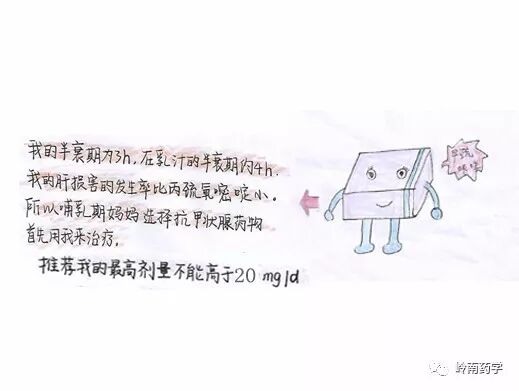 我的半衰期为3h，在乳汁的半衰期约4h，
我的肝损害的发生率比丙硫氧嘧啶小。
所以哺乳期妈妈选择抗甲状腺药物
首先用我来治疗。
推荐我的最高剂量不能高于20 mg/d
甲巯
咪唑
岭南药学